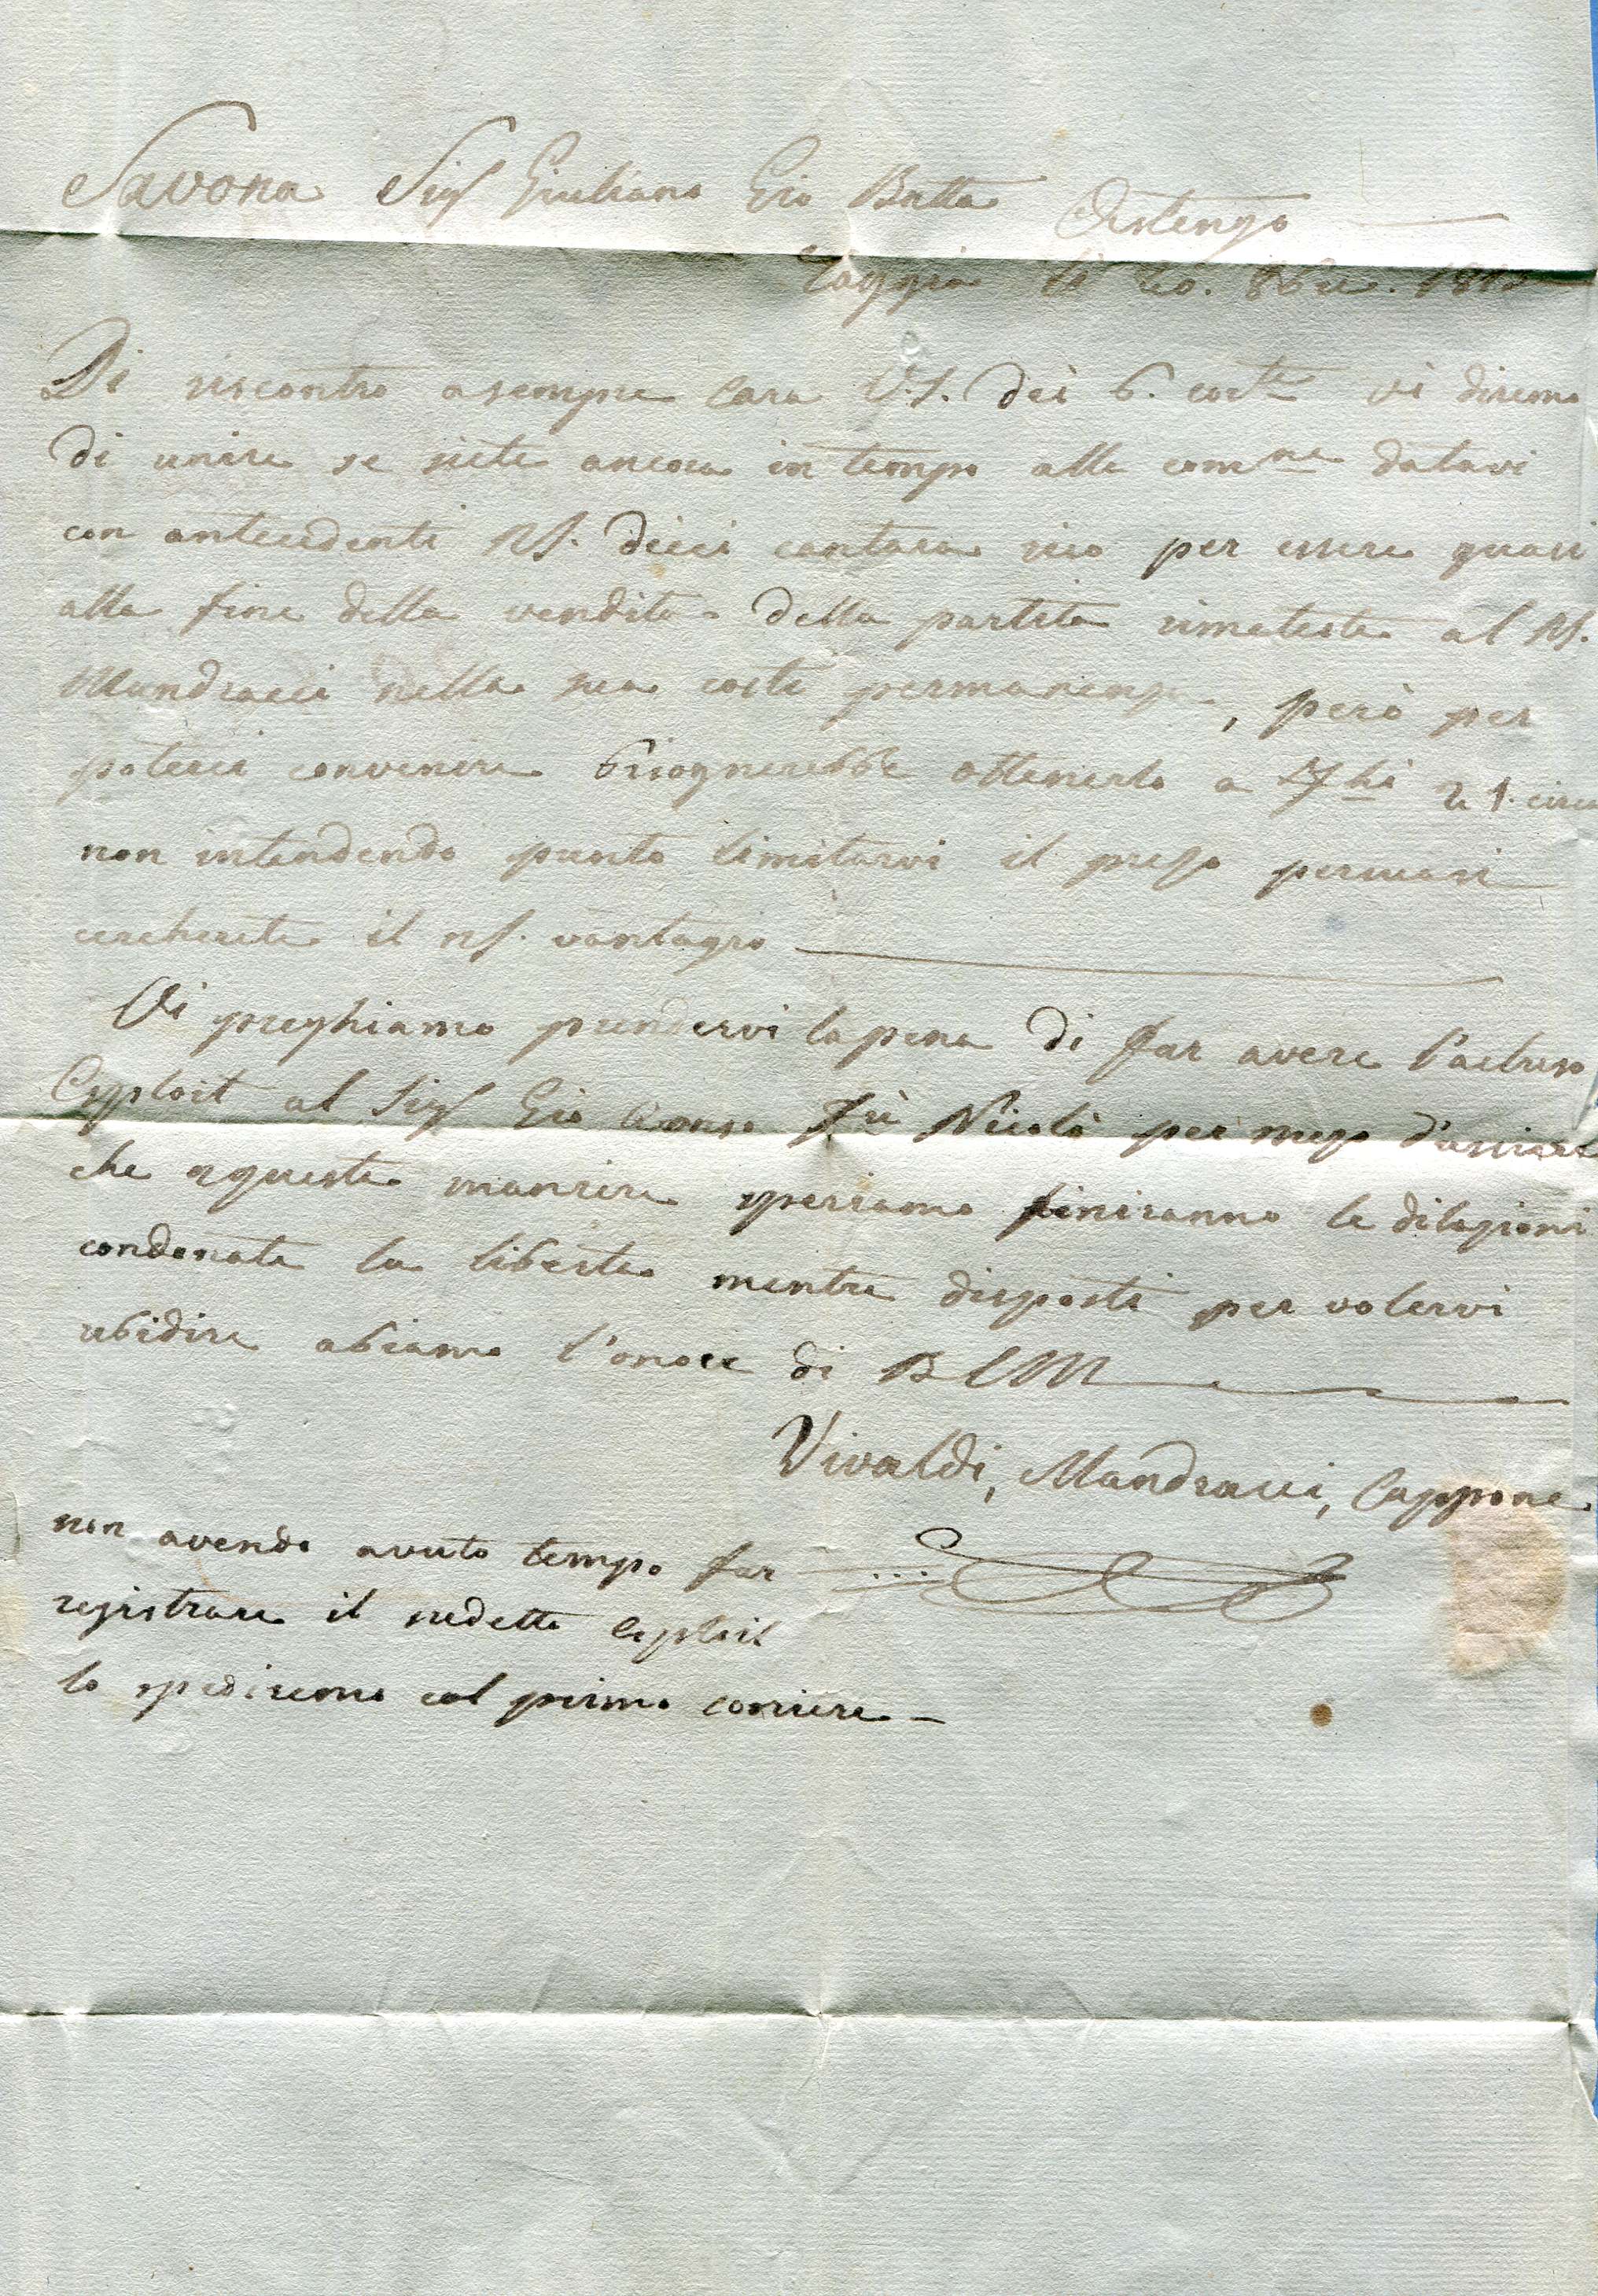 Savona Sigr Giuliano Gio Batta Astengo
Taggia li 8bre. 181
Di riscontro a sempre cara V.S. dei 6. corte vi diremo
di unire se siete ancora in tempo alla comne datavi
con antecedenti NS. dieci cantara riso per essere quasi
alla fine della vendita della partita rimeteste al NS.
Mandracci nella sua costi permanenza, però per
poterci convenire bisognerebbe ottenerlo a circa
non intendendo punto limitarvi il prezzo persuasi
cercherete il nS. vantagio
Vi preghiamo prendervi la pena di far avere l'acluso
Exploit al Sigr Gio Nicolò per mezo d'usciere
che a questa maniera speriamo finiranno le dilazioni
condonate la libertà mentre disposti per volervi
ubidire abiamo l'onore di BLM
Vivaldi, Mandracci, Cappone
non avendo avuto tempo far
registrare il sudetto exploit
lo spediremo col primo corriere